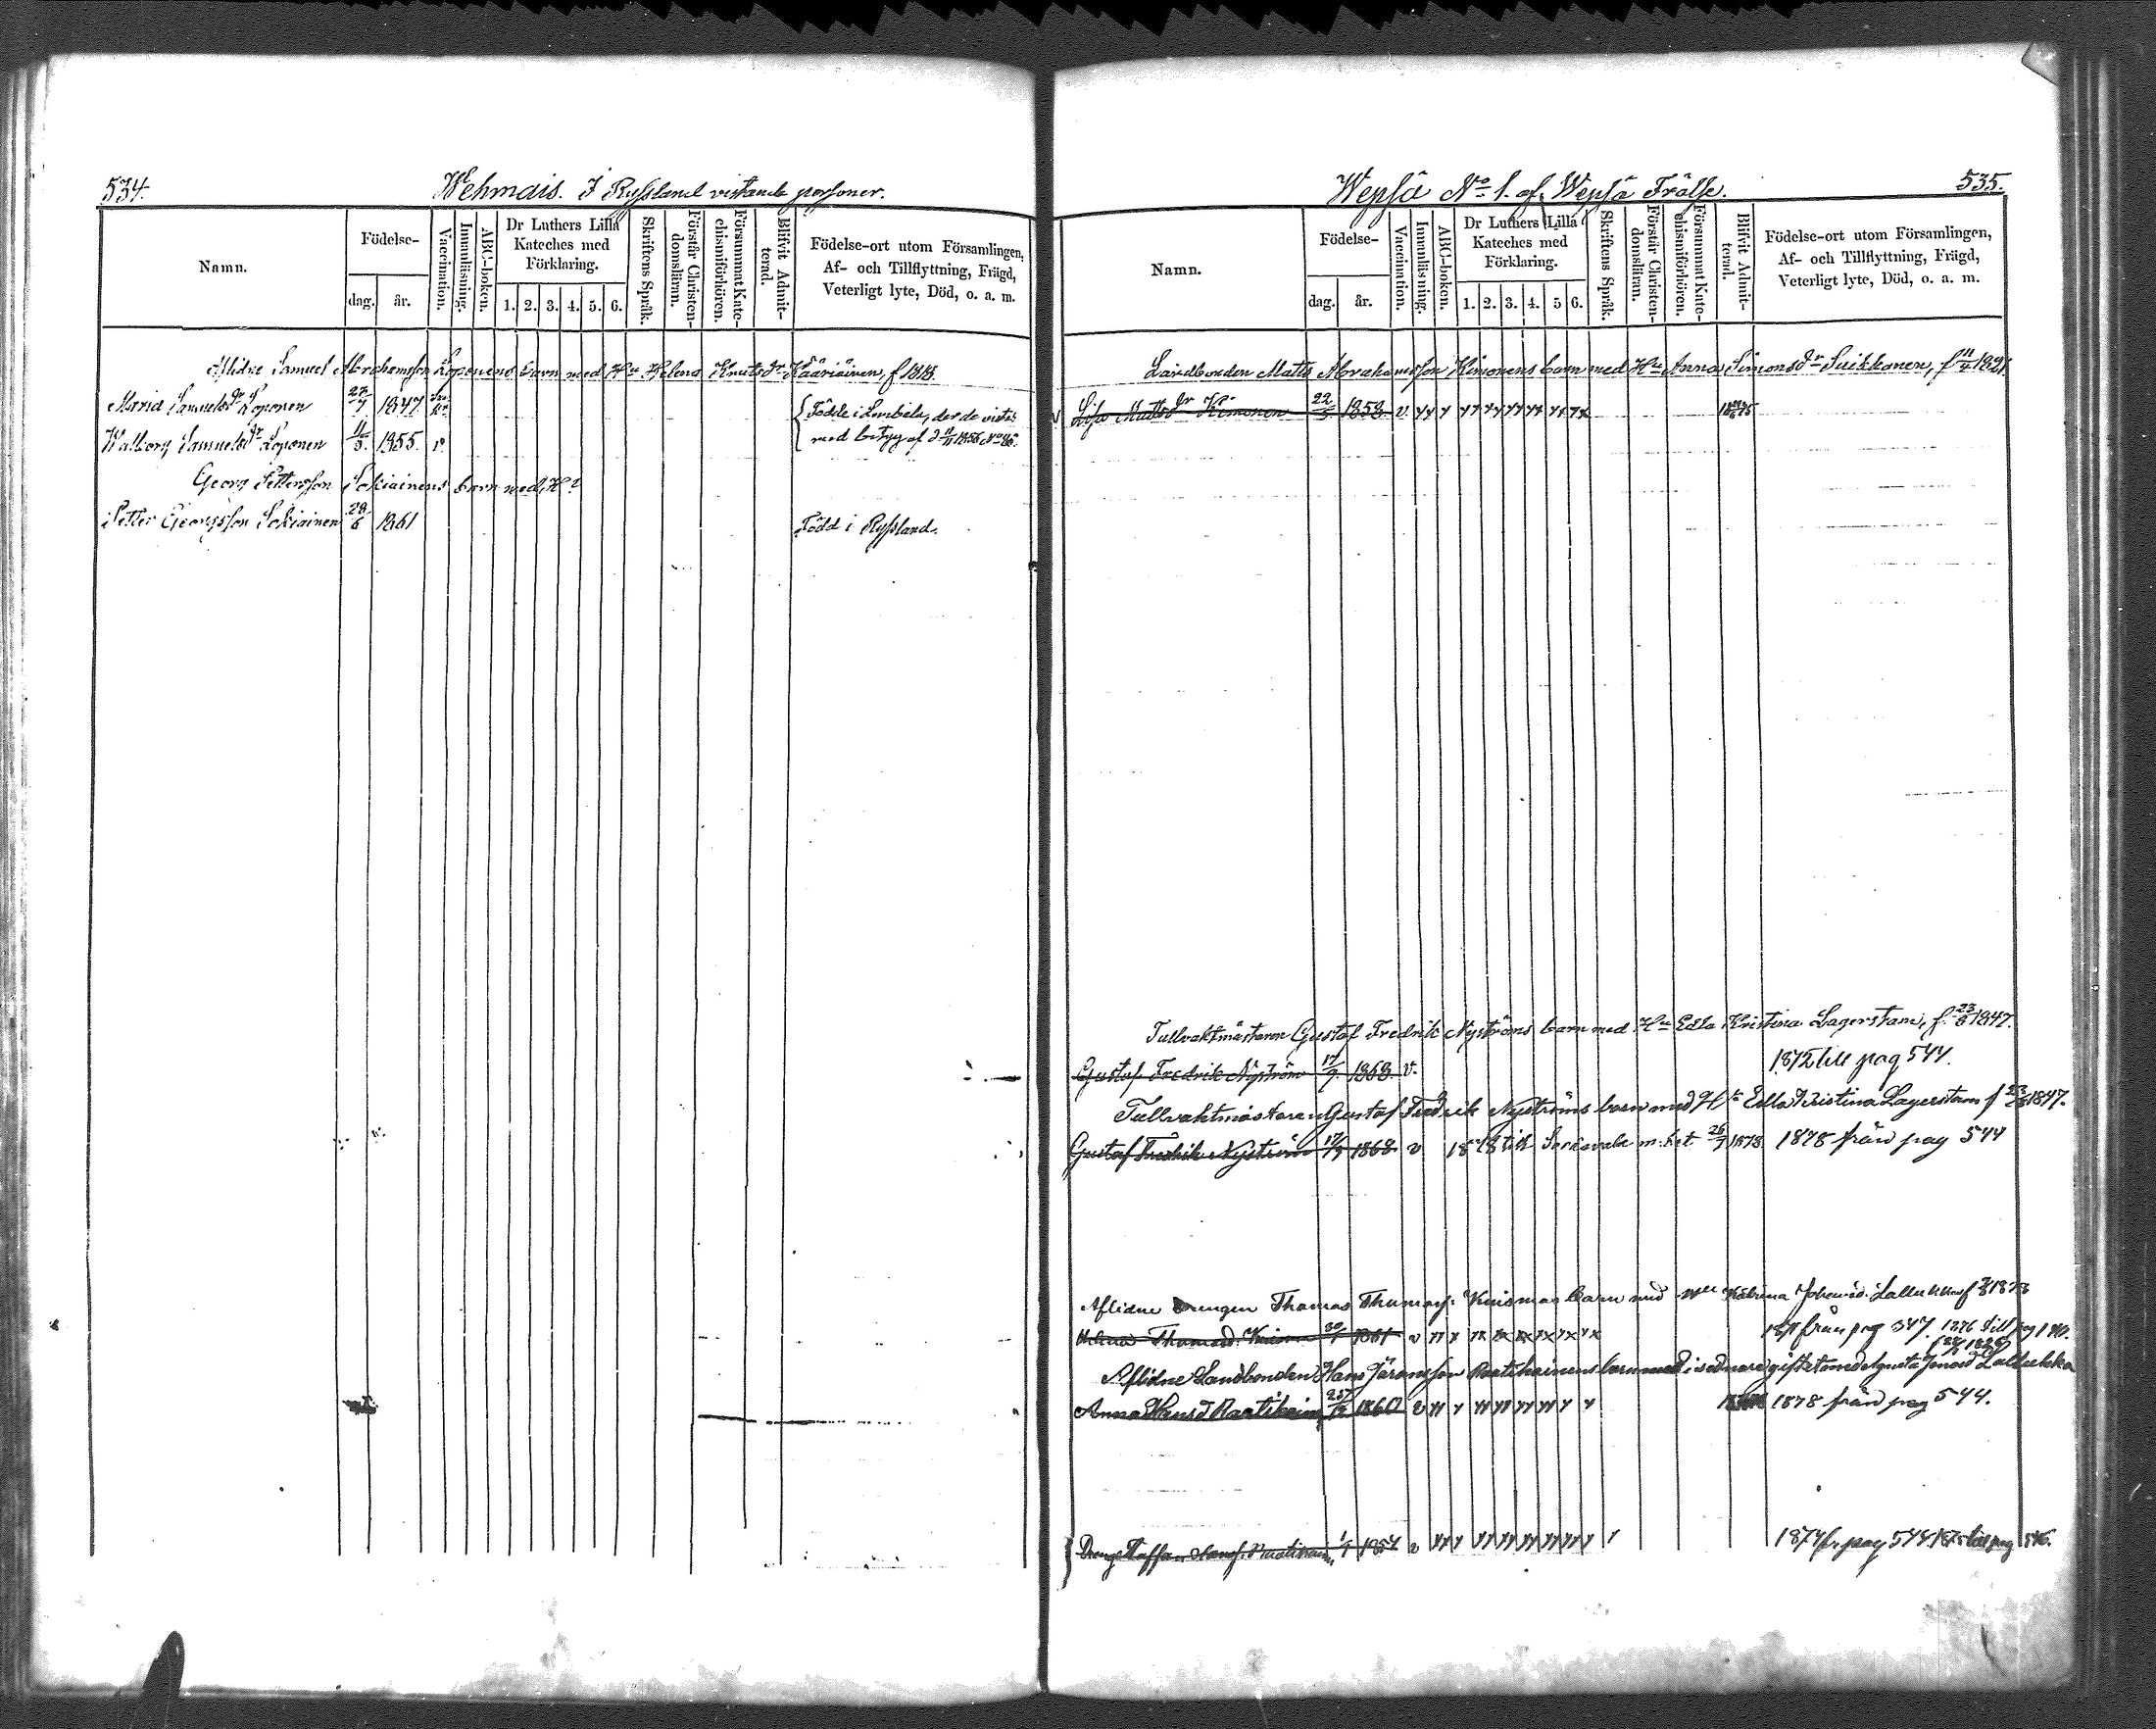 534.
Wehmais. I Ryssland vistande personer.
Namn.
Födelse-
dag.
år.
Vaccination.
Innanläsning.
ABC-boken.
Dr Luthers Lilla
Kateches med
Förklaring.
1. 2. 3. 4. 5. 6.
Skriftens Språk.
Förstår Christen-
domsläran.
Försummat Kate-
chismiförhören.
Blifvit Admit-
terad.
Födelse-ort utom Församlingen,
Af- och Tillflyttning, Frägd,
Veterligt lyte, Död, o. a. m.
Aflidne Samuel Abrahamsson Loponens barn med Hu Helena Knutsdr Kääriäinen, f 1818.
Maria Samuelsdr Loponen 27/7 1847. Födde i Lembala, der de vistas
Walborg Samuelsdr Loponen 11/3. 1855. v. med betyg af
Georg Pettersson Sokiainens barn med H?
Petter Georgsson Sokiainen 28/6 1861 Född i Ryssland.
535.
Wepsä No 1. af Wepsä Frälse.
Namn.
Födelse-
dag.
år.
Vaccination.
Innanläsning.
ABC-boken.
Dr Luthers Lilla
Kateches med
Förklaring.
1. 2. 3. 4. 5 6.
Skriftens Språk.
Förstår Christen-
domsläran.
Försummat Kate-
chismiförhören.
Blifvit Admit-
terad.
Födelse-ort utom Församlingen,
Af- och Tillflyttning, Frägd,
Veterligt lyte, Död, o. a. m.
Landbonden Matts Abrahamsson Kimonens barn med Hu Anna Simonsdr Suikkanen, f 11/4 1821.
v Lisa Mattsdr Kimonen 22/5 1858. v.
Tullvaktmästaren Gustaf Fredrik Nyströms barn med Hu Edla Kristina Lagerstam, f. 23/8 1847.
Gustaf Fredrik Nyström 17/9. 1868. v. 1872 till pag 544.
Tullvaktmästaren Gustaf Fredrik Nyströms barn med Hu Edla Kristina Lagerstam f 23/8 1847.
Gustaf Fredrik Nyström 17/9 1868 v 1878 till Sordavala m. bet 26/7 1878 1878 från pag 544
Aflidne Drengen Thomas Thomass. Kuismas barn med Katrina
Helena Thomasd. Kuisma 30/1 1861 v från pag 547. 1876 till pag
Aflidne Landbonden Hans Göransson Raatikainens barn med i sednare giftet med Agusta
Anna Hansd Raatikain 1860 v 1878 från pag 544.
Dreng Staffan Hanss. Raatikain 1/1 1854 v 1874 fr pag 544 1875 till pag 546.